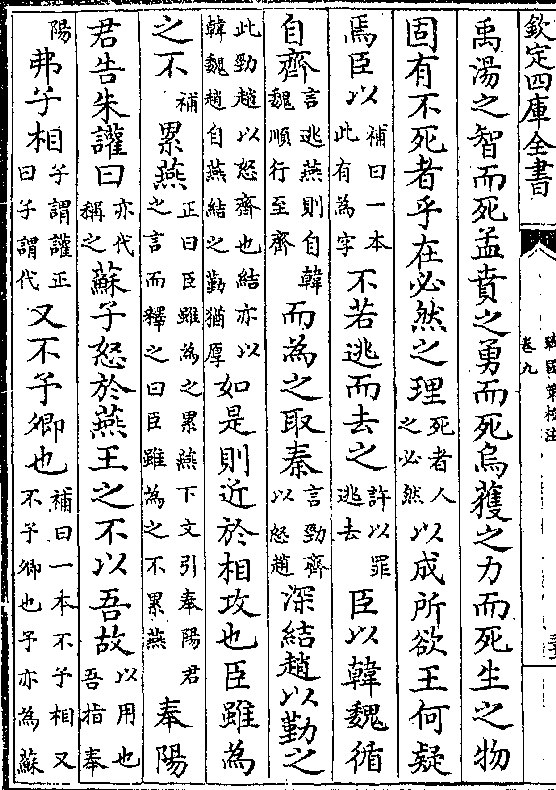 欽定四庫全書
戰國策校注
卷九
禹湯之智而死孟賁之勇而死烏獲之力而死生之物
固有不死者乎在必然之理死者人之必然以成所欲王何疑
焉臣以補曰一本此有為字不若逃而去之許以罪逃去臣以韓魏循
自齊言逃燕則自韓魏順行至齊而為之取秦言勁齊以怒趙深結趙以勤之
此勁趙以怒齊也結亦以韓魏趙自燕結之勤猶厚如是則近於相攻也臣雖為
之不補累燕正曰臣雖為之累燕下文引奉陽君之言而釋之曰臣雖為之不累燕奉陽
君告朱讙曰亦代稱之蘇子怒於燕王之不以吾故以用也吾指奉
陽弗予相予謂讙正曰予謂代又不予卿也補曰一本不予相又不予卿也予亦為蘇